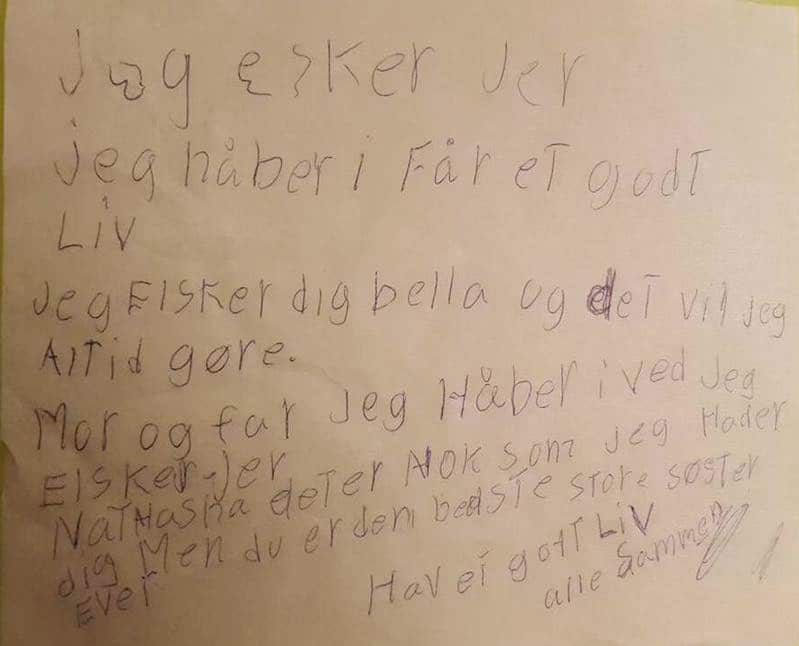 Jeg esker Jer
jeg håber i Får et godt
Liv
Jeg Elsker dig bella og det vil jeg
Altid gøre.
Mor og far Jeg Håber i ved Jeg
Elsker Jer
Nathasha det er Nok som jeg Hader
dig Men du er den bedste store søster
Ever
Hav et godt Liv
alle Sammen